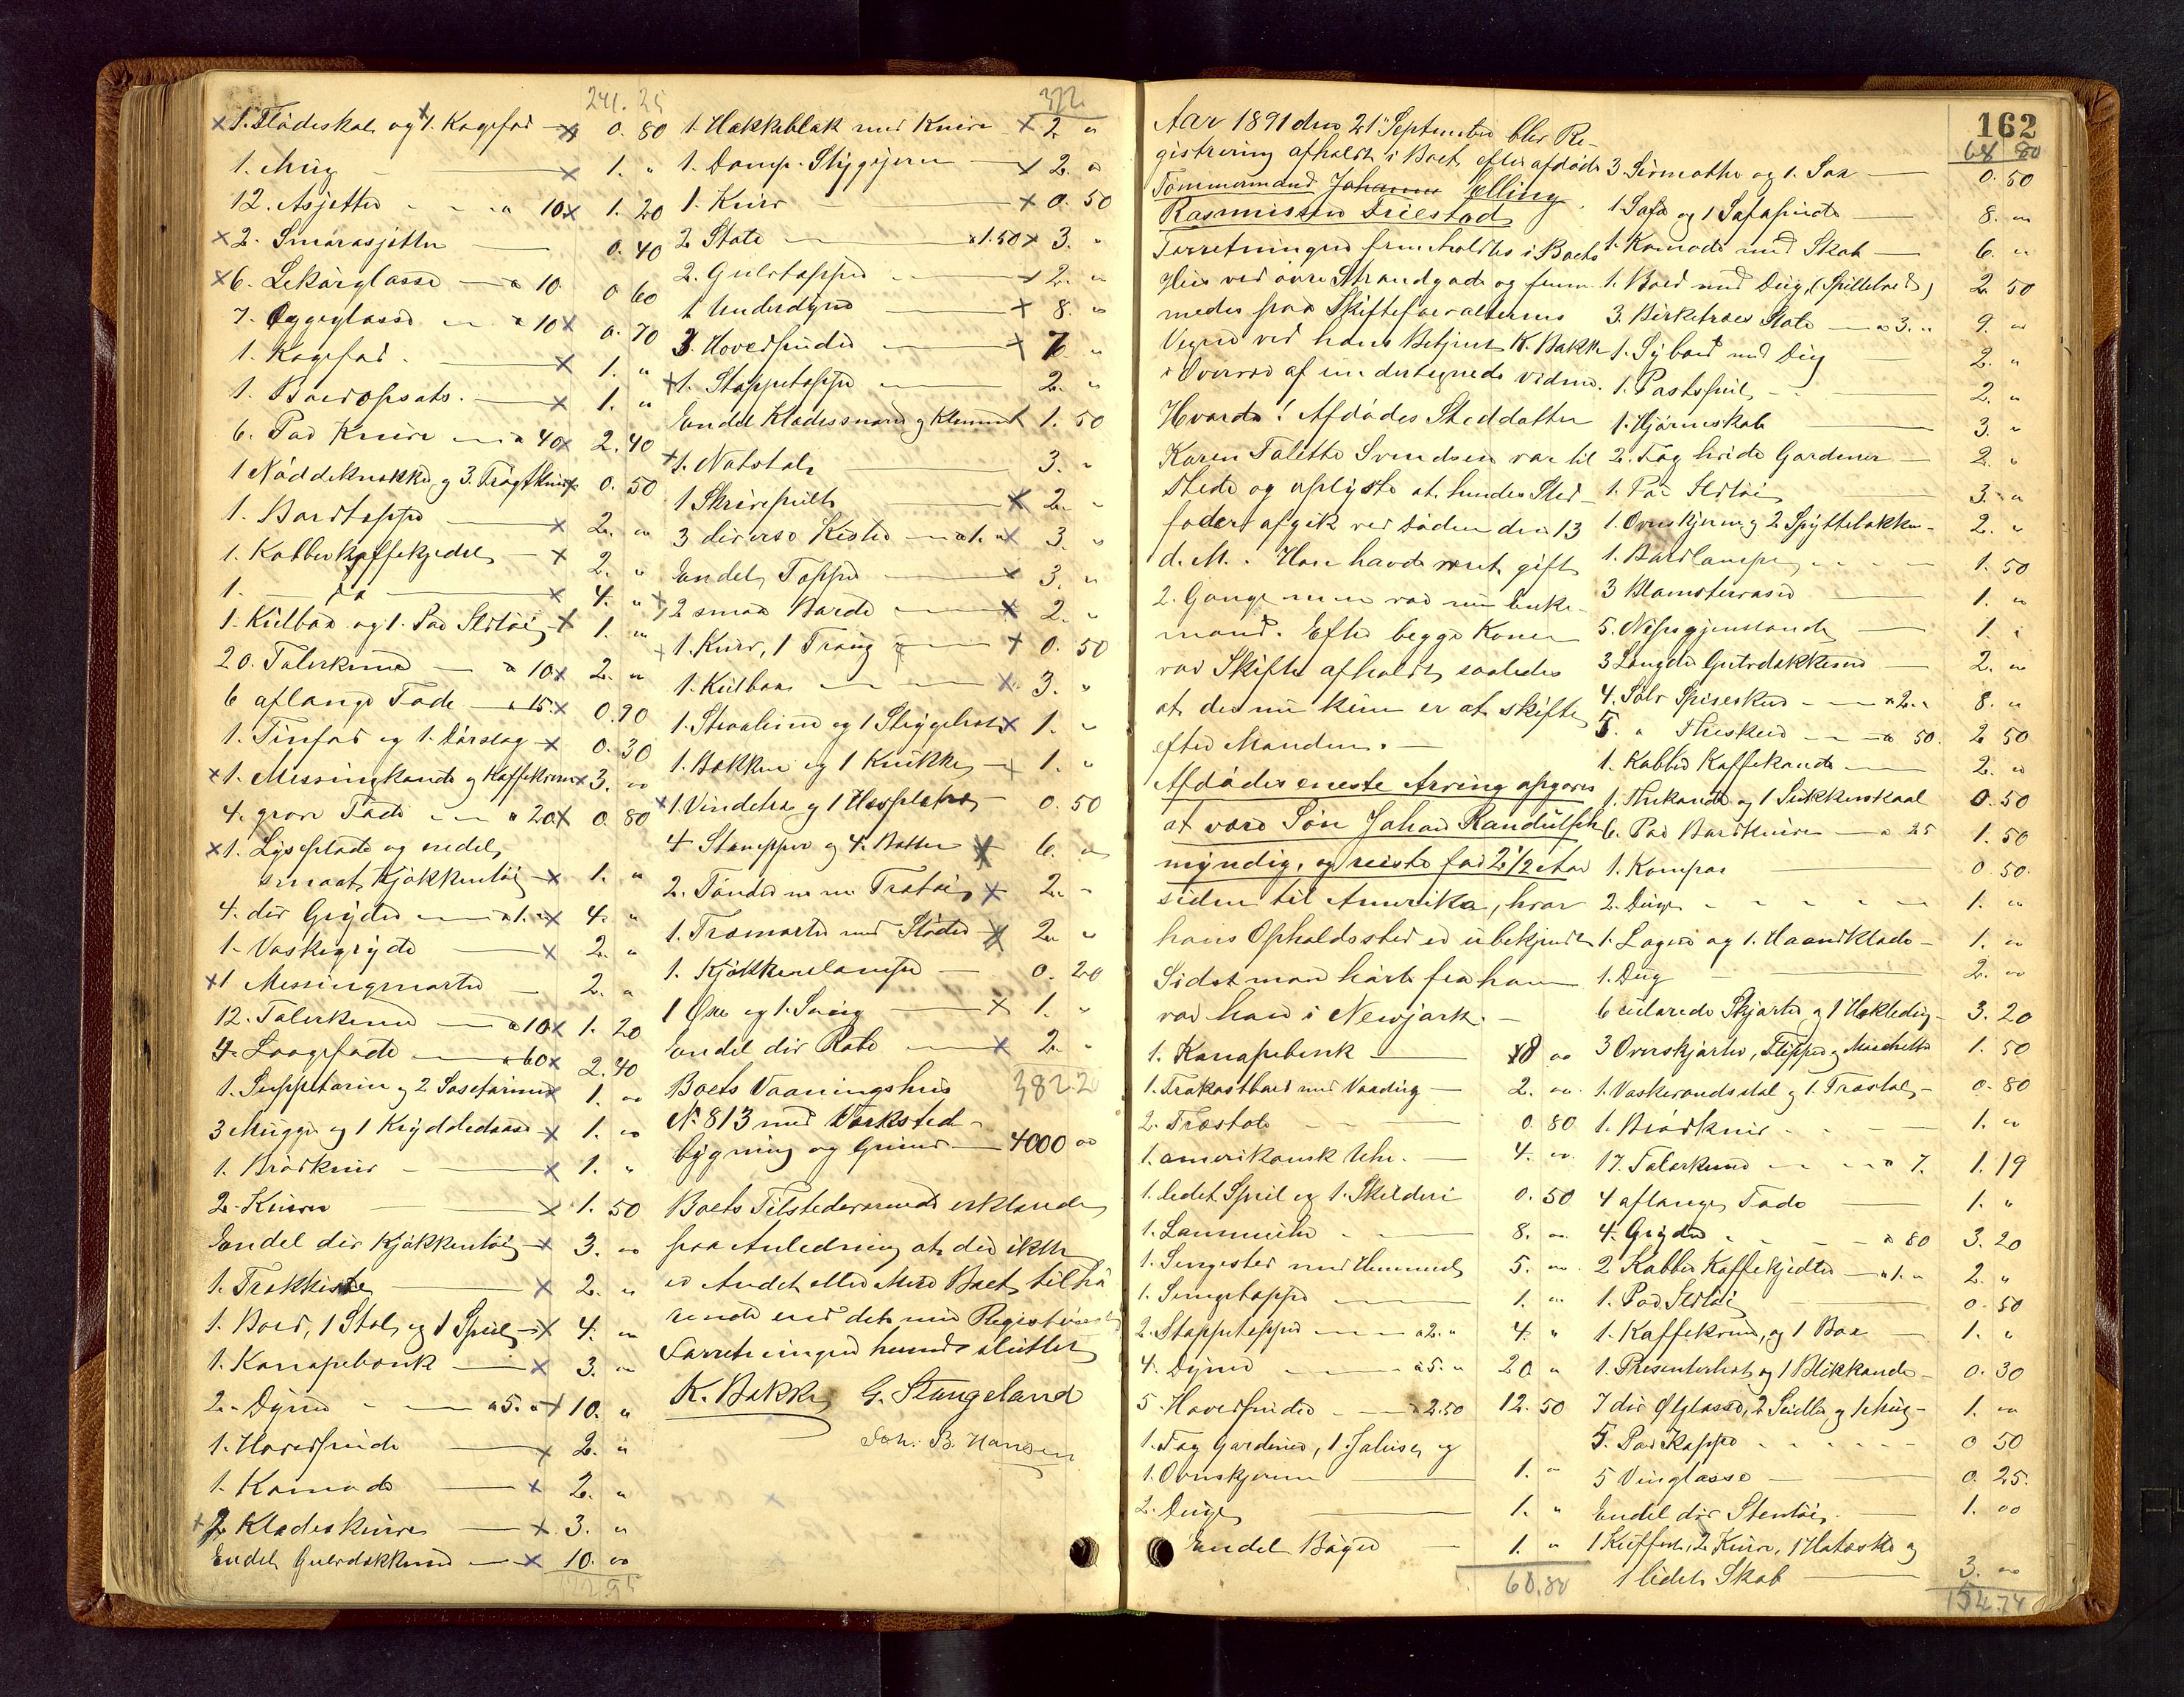 241.25
1. Flödeskal og 1. Kagefad 0. 80
1. Mug 1. "
12. Asjetter a 10 1. 20
2. Smörasjetter 0. 40
6. Lekörglasse a 10 0 60
7. Ölgeglasse a 10 0. 70
1. Kagefad 1. "
1. Bordopsats. 1. "
6. Par Knive a 40 2. 40
1 Nöddeknekker og 3. 0. 50
1. Bordteppe 2. "
1. Kobberkaffekjedel 2. "
1. do 4. "
1. Kulbör og 1. Par Ildtöi 1. "
20. Talerkener a 10 2. "
6 aflange Fade a 15 0.90
1. Tinfad og 1. Dörslag 0. 30
1. Messingkande og Kaffekvern 3. "
4. grove Fade a 20 0. 80
1. Lyseplade og endel
smaat Kjökkentöi 1. "
4. div Gryder a 1. " 4. "
1. Vaskegryde 2. "
1 Messingmorter 2. "
12. Talerkener a 10 1. 20
4. Langefade a 60 2.40
1. Suppeterin og 2 Soseteriner 1. "
3 Mugger og 1 Krydderdaase 1. "
1. Brödkniv 1. "
2. Kurve 1. 50
Endel div Kjökkentöi 3. "
1. Trækkiste 2. "
1. Bord, 1 Stol og 1 Speil 4. "
1. Kanapebenk 3. "
2. Dyner a 5. " 10. "
1. Hovedpude 2. "
1. Komode 2. "
2 Kladeskurve 3. "
Endel Gulvdekkener 10. "
322.
1. Hakkeblok med Kniv 2. "
1. Damp. Strygejern 2. "
1. Kurv 0. 50
2 Stole a 1.50 3. "
2. Gulvtepper 2. "
1 Underdyne 8. "
3. Hovedpuder 7. "
1. Stoppeteppe 2. "
Endel Kladessnore og Klemmer 1. 50
1. Natstol 3. "
1 Skrivepult 2. "
3 diverse Kister a 1. " 3. "
Endel Tepper 3. "
2 smaa Borde 2. "
1. Kurv, 1 Traug 0. 50
1. Kulbox 3. "
1. og 1 Strygebret 1. "
1. Bekken og 1 Krukke 1. "
1 Vindetræ og 1 0. 50
4 Stamper og 4. Bötter 6. "
2. Tönder m m Trætöi 2. "
1. Træmorter med Stöder 2. "
1. Kjökkenlampe 0. 20
1 Öxe og 1. Sag 1. "
Endel div 2. "
382.20
Boets Vaaningshus
No 813 med Verksted-
bygning og Grund 4000 "
Boets Tilstedeværende erklærede
paa Anledning at der ikke
er Andet eller Mere Boet tilhö
rende end det nu Registrerede
Forretningen hermed sluttet
K. Bakke G. Stangeland
Joh. B. Hansen
Aar 1891 den 21 September blev Re-
gistrering afholdt i Boet efter afdöde
Tömmermand Johannes Elling
Rasmussen Friestad
Forretningen fremholdtes i Boets
Hus ved övre Strandgade og frem-
medes paa Skifteforvalterens
Vegne ved hans Betjent K. Bakke
i Overvær af undertegnede Vidner.
Hvorda! Afdödes Steddatter
Karen Talette Svendsen var til
stede og oplyste at hendes Sted-
fader afgik ved Döden den 13
d. M. Han havde veret gift
2. Gange men var nu Enke-
mand. Efter begge Koner
var Skifte afholdt saaledes
at der nu kun er at skifte
efter Manden.
Afdödes eneste Arving opgaves
at være Sön Johan Randulf
myndig, og reiste for 2 1/2 Aar
siden til Amerika, hvor
hans Opholdssted er ubekjendt
Sidst man hört fra ham
var han i Newjork.
1. Kanapebenk 8 "
1. Frokostbord med Voxdug 2. "
2. Træstole 0. 80
1. amerikansk Uhr 4. "
1. lidet Speil og 1. Skilderi 0. 50
1. Lommeuhr 8. "
1. Sengested med Hemmel 5. "
1. Sengeteppe 1. "
2. Stoppetepper a 2. " 4. "
4. Dyner a 5. " 20 "
5. Hovedpuder a 2.50 12. 50
1. Fag Gardiner, 1 Jalusi, og
1. Ovnskjerm 1. "
2. Duge 1. "
Endel Böger 1. "
68.80
162
68 80
3. Sirmatte og 1. Sax 0. 50
1. Sofa og 1 Sofapude 8. "
1. Komode med Skab 6. "
1. Bord med Dug, (Spillebord) 2. 50
3. Birketræes Stole a 3. " 9. "
1. Sybord med Dug 2. "
1. 2. "
1. Hjörneskab 3. "
2. Fag hvide Gardener 2. "
1. Par Ildtöi 3. "
1. Ovnskjerm og 2 Spyttebakker 2. "
1. Bordlampe 1. 50
3 Blomstervaser 1. "
5. Nipsgjenstande 1. "
3 Længder Gulvdækkener 2. "
4. Sölv Spiseskeer a 2. " 8. "
5. " Theskeer a 50. 2 50
1. Kobber Kaffekande 2. "
1. Thekande og 1 Sukkerskaal 0. 50
6. Par Bordknive a 25 1. 50
1. Kompas 0. 50.
2. Duge 1. "
1. Lagen og 1. Haandklæde 1. "
1. Dug 2. "
6 culörede Skjorter og 1 Hekledug 3. 20
3 Overskjorter, Flipper og Manchetter 1. 50
1. Vaskevandsstol og 1. Træstol 0. 80
1. Brödkniv 1. "
17. Talerkener a 7. 1. 19
4 aflange Fade 1. "
4. Gryder a 80 3. 20
2 Kobber Kaffekjedler a 1. " 2. "
1. Par Ildtöi 0. 50
1. Kaffekvern, og 1 Box 1. "
1. Presenterbret og 1 Blikkande 0. 30
7 div Ölglasse, 2 og 1 Mug 1. "
5. Par Kopper 0 50
5 Vinglasse 0. 25.
Endel div Stentöi 1. 00
1 Kuffert, 2 Kurve, 1 og
1 lidet Skab 3. "
154.74